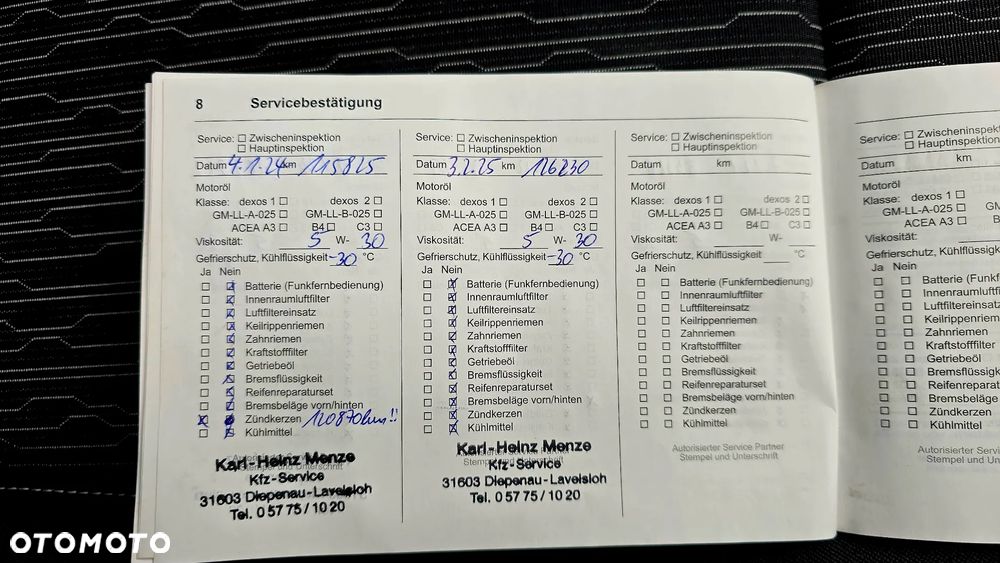 8 Servicebestätigung
Service: Zwischeninspektion
Hauptinspektion
Datum 4.1.24 km 115825
Motoröl
Klasse: dexos 1 dexos 2
GM-LL-A-025 GM-LL-B-025
ACEA A3 B4 C3
Viskosität: 5 W- 30
Gefrierschutz, Kühlflüssigkeit -30 °C
Ja Nein
Batterie (Funkfernbedienung)
Innenraumluftfilter
Luftfiltereinsatz
Keilrippenriemen
Zahnriemen
Kraftstofffilter
Getriebeöl
Bremsflüssigkeit
Reifenreparaturset
Bremsbeläge vorn/hinten
Zündkerzen 120870km!!
Kühlmittel
Autorisierter Service Partner
Stempel und Unterschrift
Karl-Heinz Menze
Kfz-Service
31603 Diepenau-Lavelsloh
Tel. 0 57 75 / 10 20
Service: Zwischeninspektion
Hauptinspektion
Datum 3.2.25 km 126230
Motoröl
Klasse: dexos 1 dexos 2
GM-LL-A-025 GM-LL-B-025
ACEA A3 B4 C3
Viskosität: 5 W- 30
Gefrierschutz, Kühlflüssigkeit -30 °C
Ja Nein
Batterie (Funkfernbedienung)
Innenraumluftfilter
Luftfiltereinsatz
Keilrippenriemen
Zahnriemen
Kraftstofffilter
Getriebeöl
Bremsflüssigkeit
Reifenreparaturset
Bremsbeläge vorn/hinten
Zündkerzen
Kühlmittel
Autorisierter Service Partner
Stempel und Unterschrift
Karl-Heinz Menze
Kfz-Service
31603 Diepenau-Lavelsloh
Tel. 0 57 75 / 10 20
Service: Zwischeninspektion
Hauptinspektion
Datum km
Motoröl
Klasse: dexos 1 dexos 2
GM-LL-A-025 GM-LL-B-025
ACEA A3 B4 C3
Viskosität: W-
Gefrierschutz, Kühlflüssigkeit °C
Ja Nein
Batterie (Funkfernbedienung)
Innenraumluftfilter
Luftfiltereinsatz
Keilrippenriemen
Zahnriemen
Kraftstofffilter
Getriebeöl
Bremsflüssigkeit
Reifenreparaturset
Bremsbeläge vorn/hinten
Zündkerzen
Kühlmittel
Autorisierter Service Partner
Stempel und Unterschrift
Service: Zwischeninspektion
Hauptinspektion
Datum km
Motoröl
Klasse: dexos 1
GM-LL-A-025
ACEA A3
Viskosität:
Gefrierschutz, Kühlflüssig
Ja Nein
Batterie (Funkf
Innenraumluftfi
Luftfiltereinsatz
Keilrippenriemen
Zahnriemen
Kraftstofffilter
Getriebeöl
Bremsflüssigkeit
Reifenreparaturset
Bremsbeläge vorn/
Zündkerzen
Kühlmittel
Autorisierter Servi
Stempel und Unters
OTOMOTO